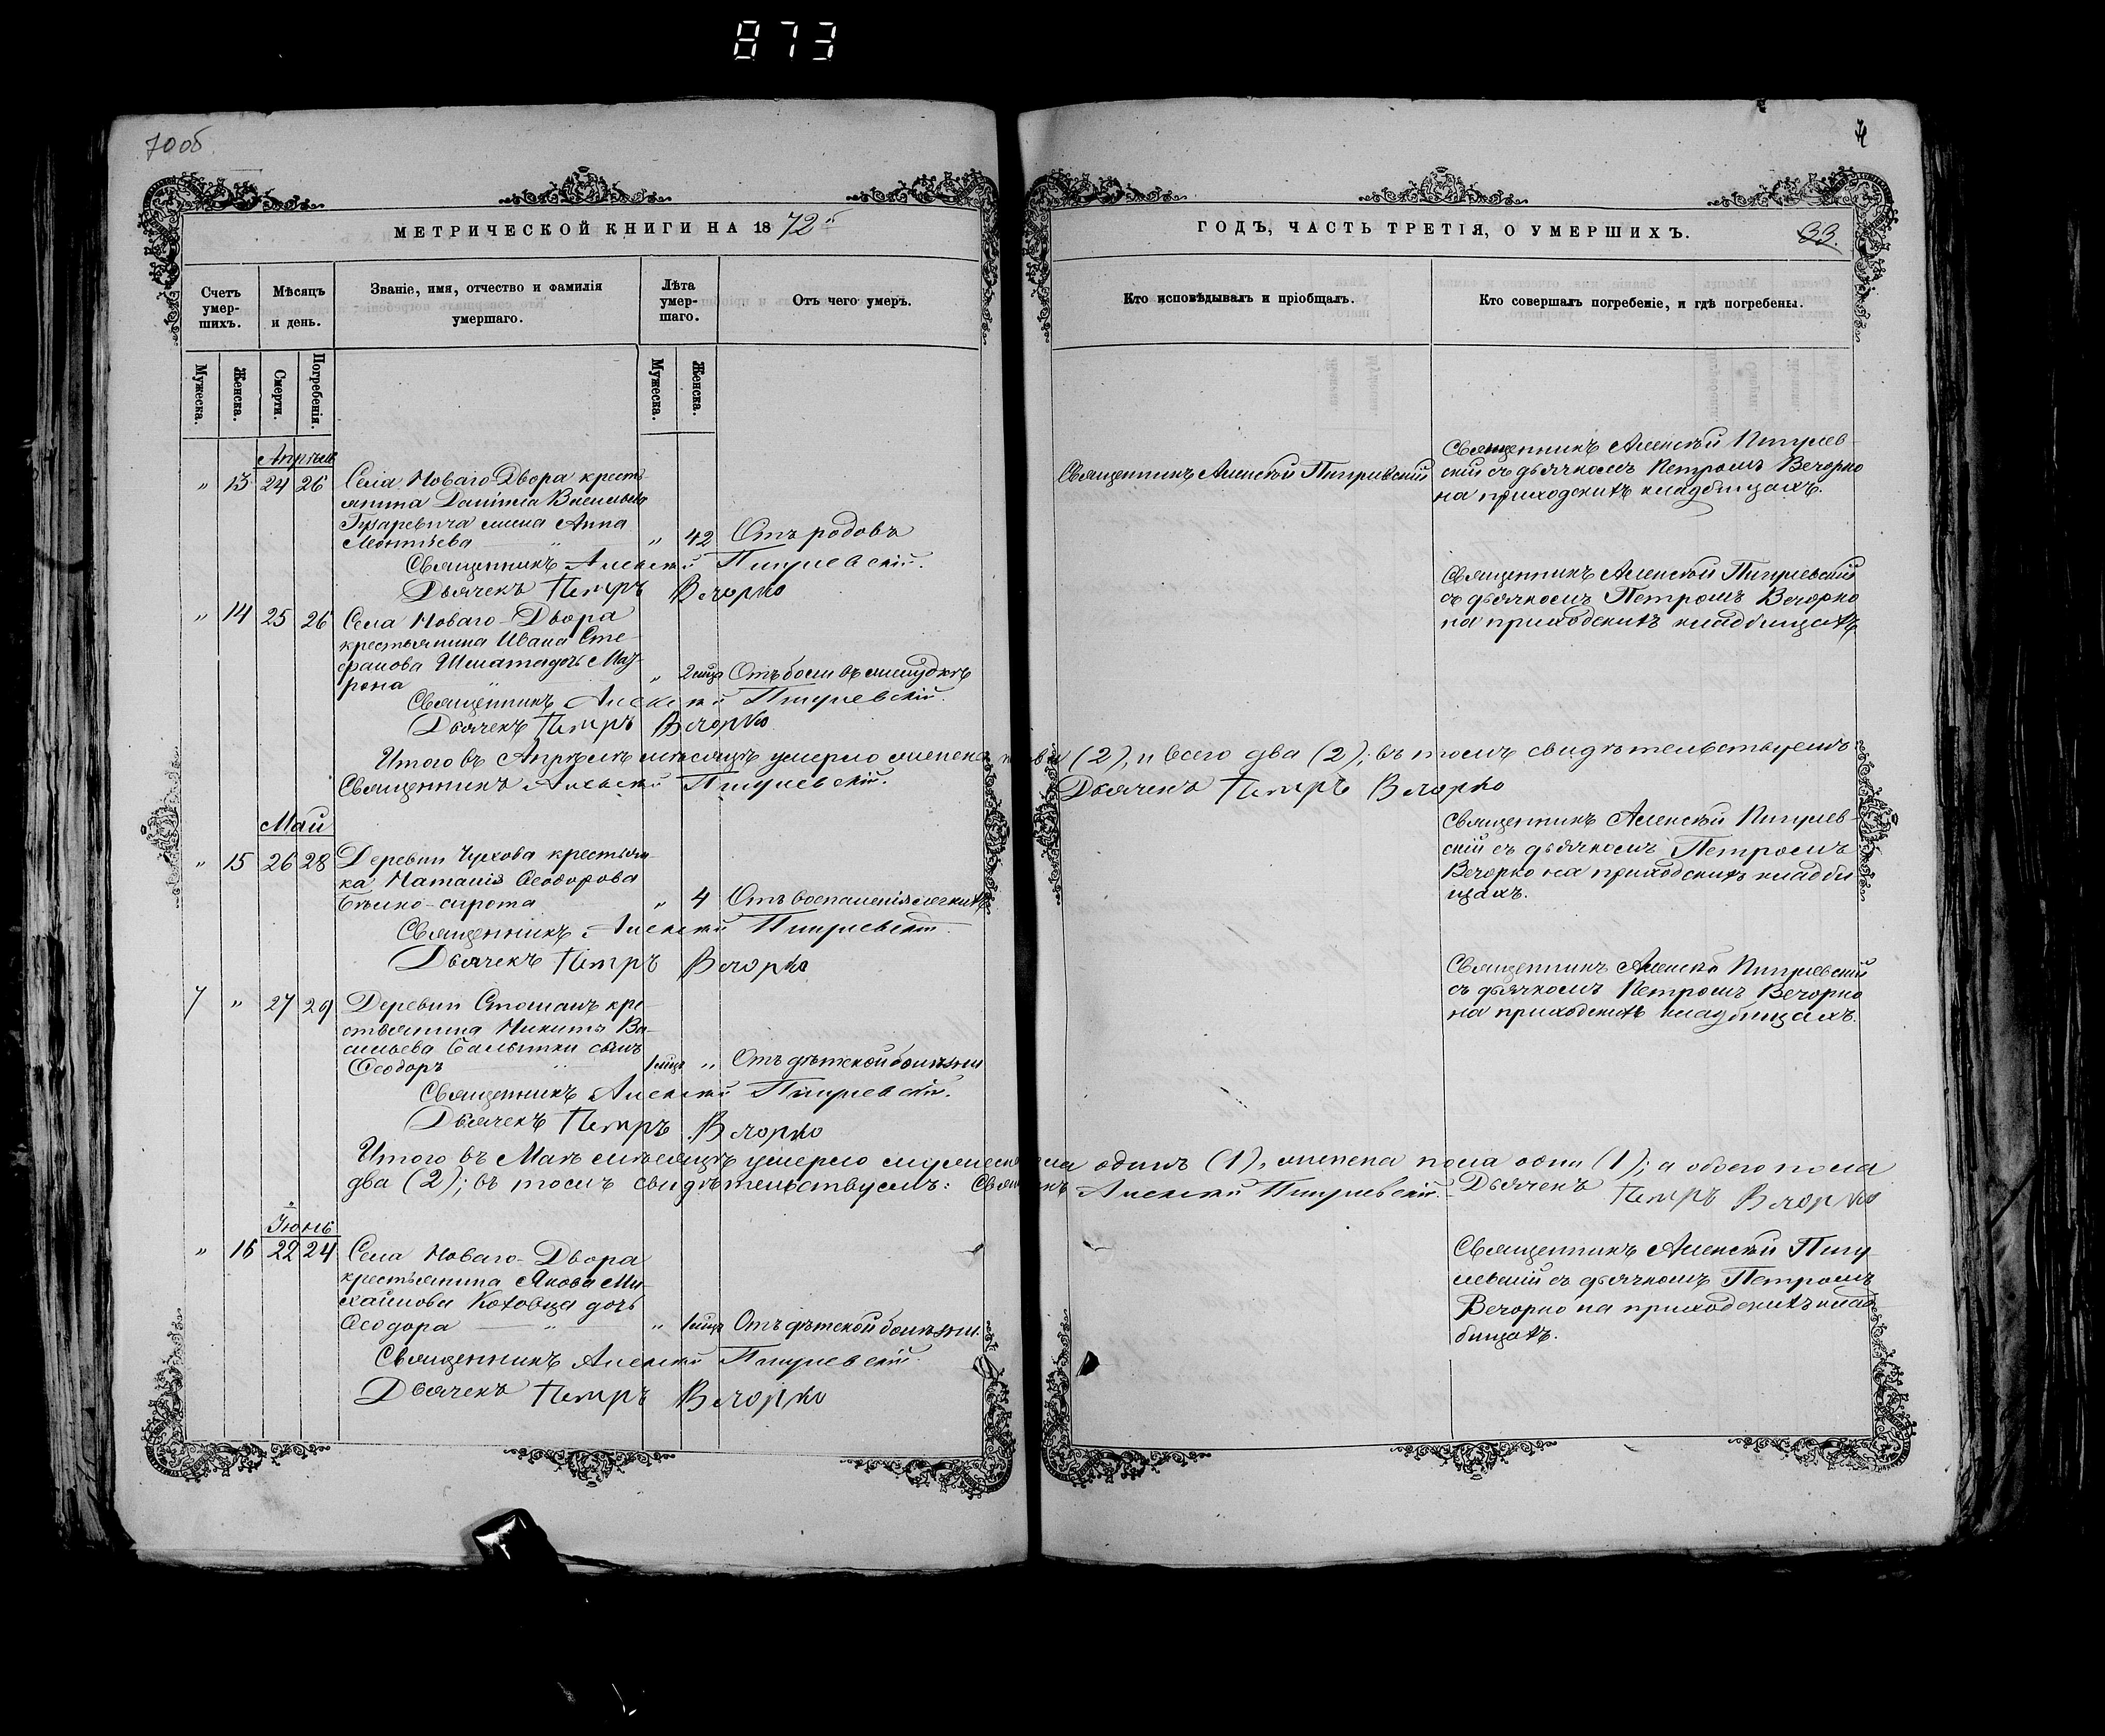 873
70 об
МЕТРИЧЕСКОЙ КНИГИ НА 1872й
ГОДЪ, ЧАСТЬ ТРЕТІЯ, О УМЕРШИХЪ.
33.
Счетъ умер-шихъ.
Мѣсяцъ и день.
Званіе, имя, отчество и фамилія умершаго.
Лѣта умер-шаго.
Отъ чего умеръ.
Кто исповѣдывалъ и пріобщалъ.
Кто совершалъ погребеніе, и гдѣ погребены.
Мужеска.
Женска.
Смерти.
Погребенія.
Мужеска.
Женска.
Апрѣль
„ 13 24 26
Села Новаго-Двора кресть-
янина Даніила Васильева
жена Анна
Леонтьева „ 42 Отъ родовъ
Священникъ Алексѣй
Священникъ Алексѣй
скій съ дьячкомъ Петромъ Вечорко
на приходскихъ кладбищахъ.
Священникъ Алексѣй
Дьячекъ Петръ Вечорко
„ 14 25 26
Села Новаго-Двора
крестьянина Ивана Сте-
фанова Шмата дочь Мат-
рона „ 2 мца Отъ боли въ желудкѣ
Священникъ Алексѣй
съ дьячкомъ Петромъ Вечорко
на приходскихъ кладбищахъ
Священникъ Алексѣй
Дьячекъ Петръ Вечорко
Итого въ Апрѣлѣ мѣсяцѣ умерло женска (2), и всего два (2); въ томъ свидѣтельствуемъ:
Священникъ Алексѣй
Дьячекъ Петръ Вечорко
Май
„ 15 26 28
Деревни Чухова крестьян-
ка Наталія Ѳеодорова
сирота „ 4 Отъ воспаленія легкихъ
Священникъ Алексѣй
скій съ дьячкомъ Петромъ
Вечорко на приходскихъ кладби-
щахъ.
Священникъ Алексѣй
Дьячекъ Петръ Вечорко
7 „ 27 29
Деревни Стошанъ кре-
стьянина Никиты Ва-
сильева сынъ
Ѳеодоръ 1 мца „ Отъ дѣтской болѣзни
Священникъ Алексѣй
съ дьячкомъ Петромъ Вечорко
на приходскихъ кладбищахъ.
Священникъ Алексѣй
Дьячекъ Петръ Вечорко
Итого въ Маѣ мѣсяцѣ умерло мужеска пола одинъ (1), женска пола одна (1); а обоего пола
два (2); въ томъ свидѣтельствуемъ: Священникъ Алексѣй Дьячекъ Петръ Вечорко
Іюнь
„ 16 22 24
Села Новаго-Двора
крестьянина Якова Ми-
хайлова Котовца дочь
Ѳеодора „ 1 мца Отъ дѣтской болѣзни.
Священникъ Алексѣй
съ дьячкомъ Петромъ
Вечорко на приходскихъ клад-
бищахъ.
Священникъ Алексѣй
Дьячекъ Петръ Вечорко